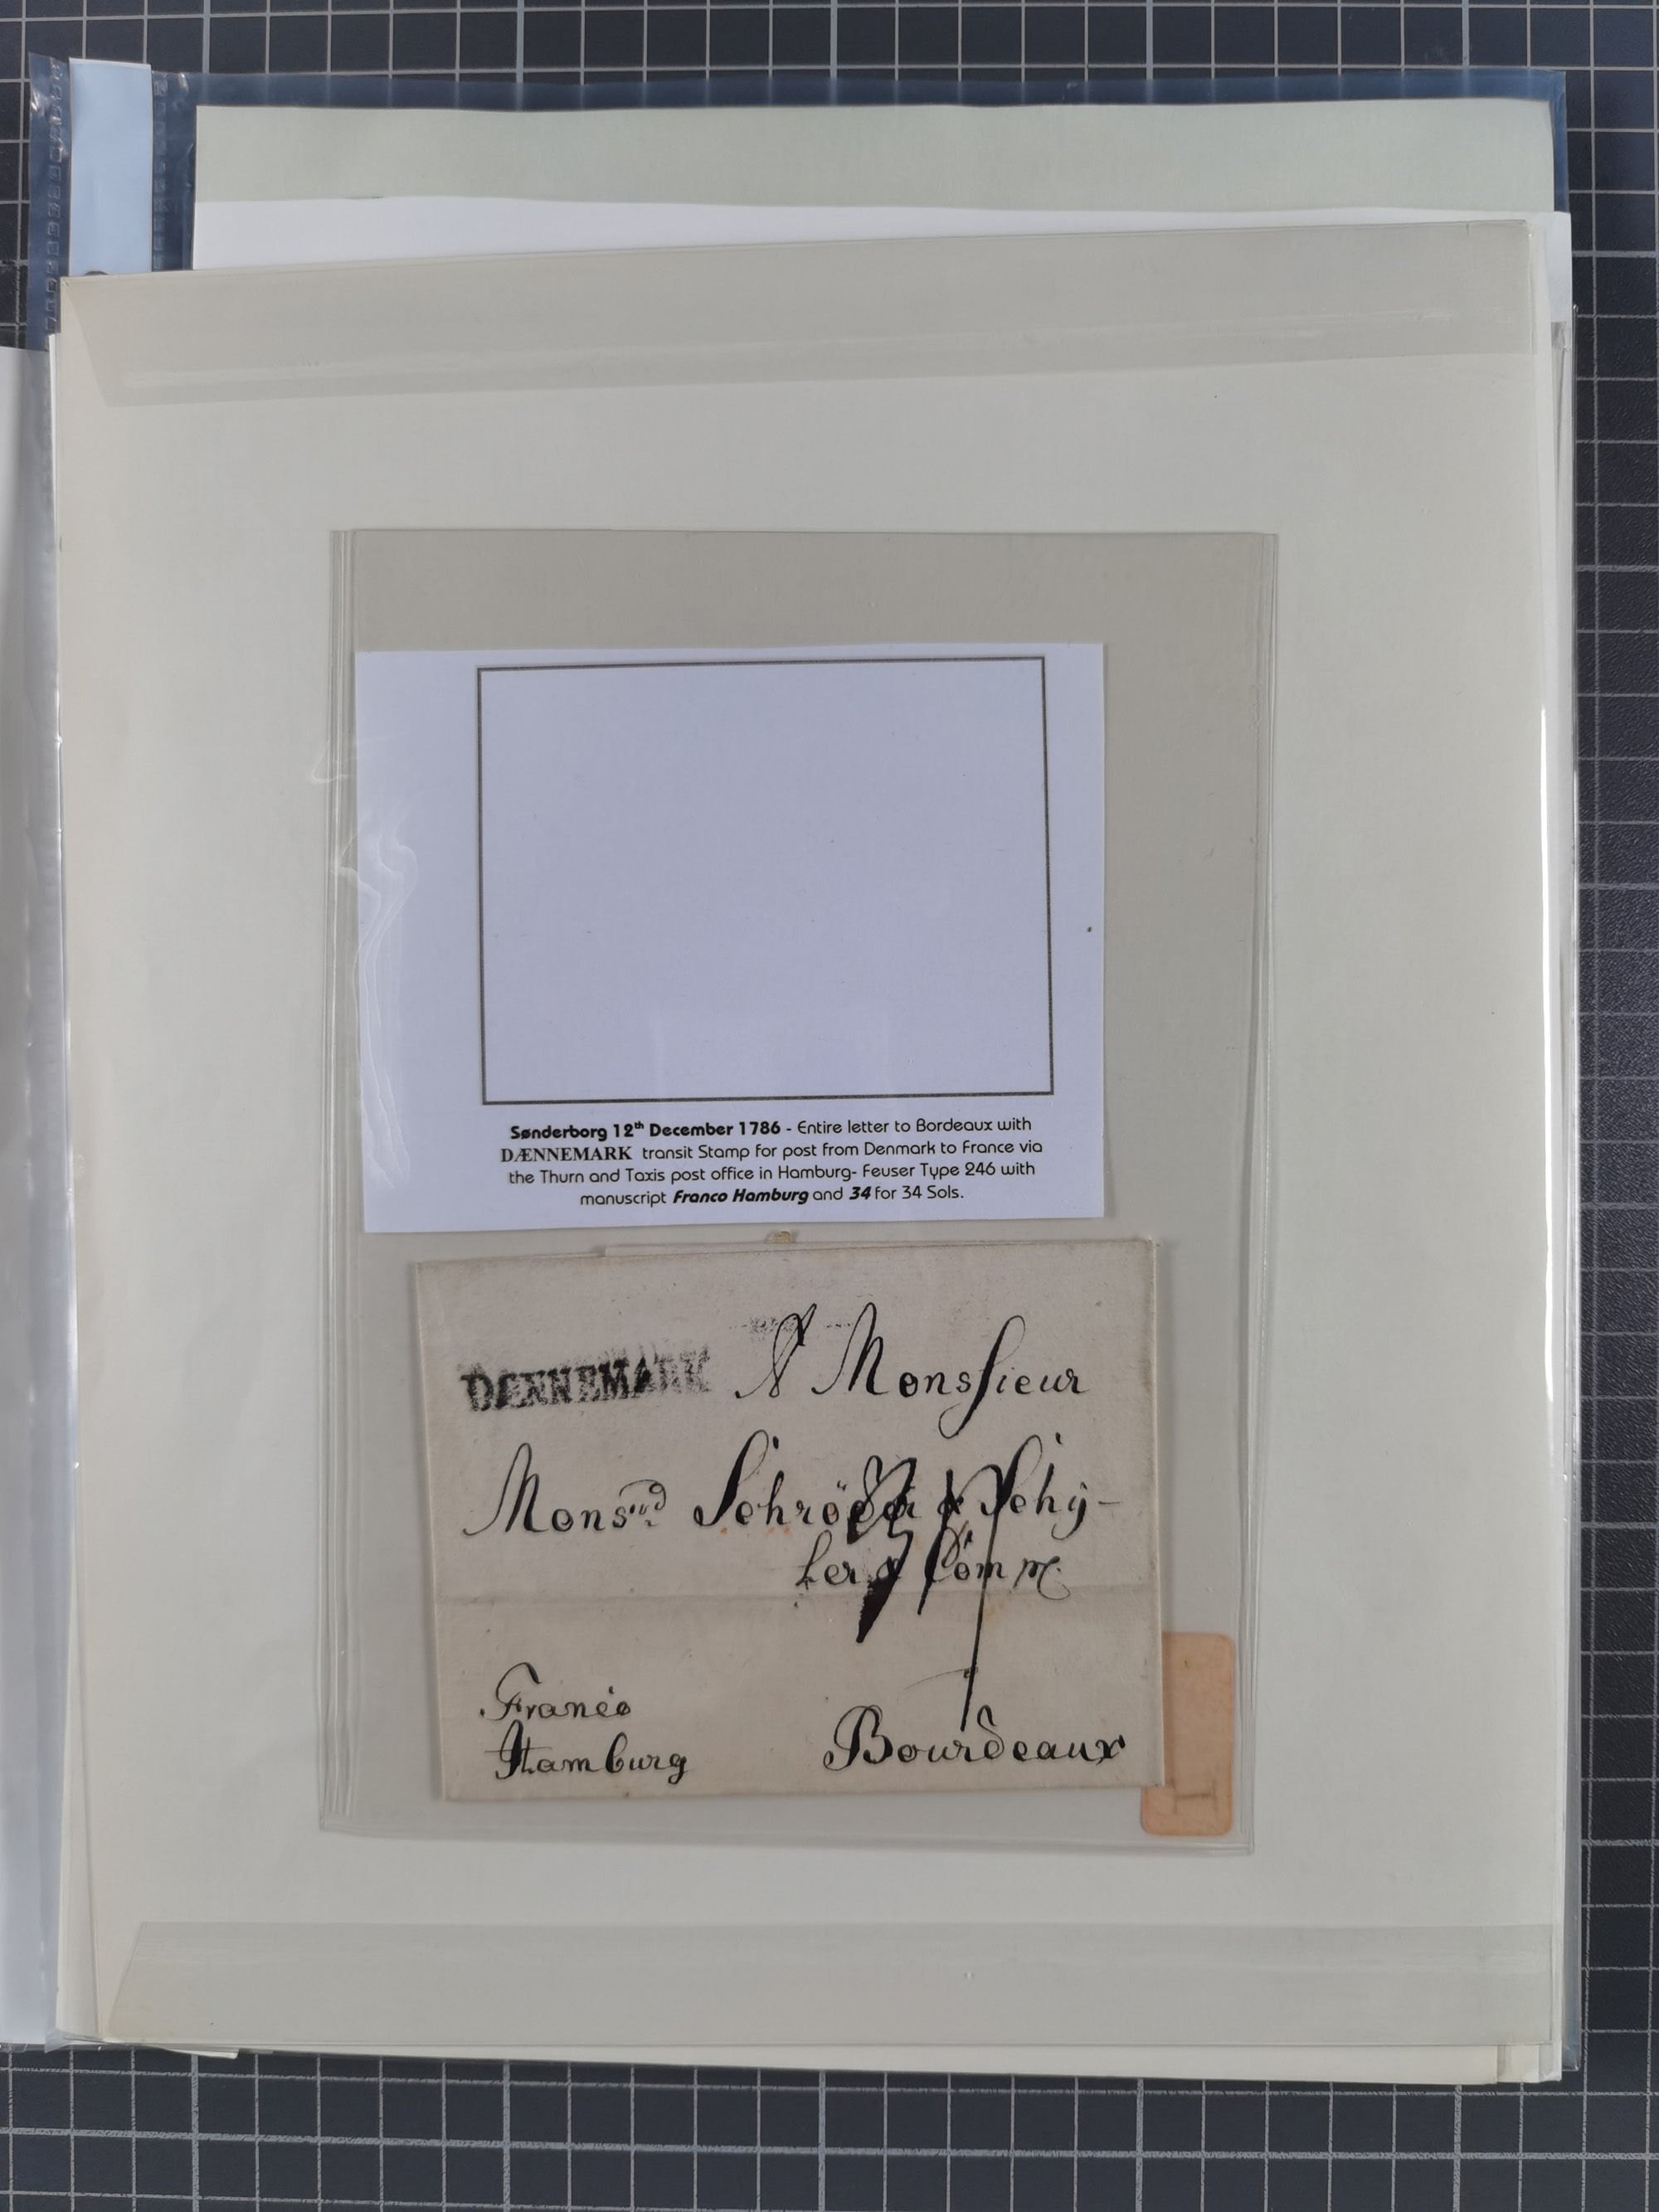 Sønderborg 12th December 1786 - Entire letter to Bordeaux with
DÆNNEMARK transit Stamp for post from Denmark to France via
the Thurn and Taxis post office in Hamburg- Feuser Type 246 with
manuscript Franco Hamburg and 34 for 34 Sols.
DÆNNEMARK
A Monsieur
Schröder & Schÿ-
ler & Comp
34
Franco
Hamburg
Bourdeaux